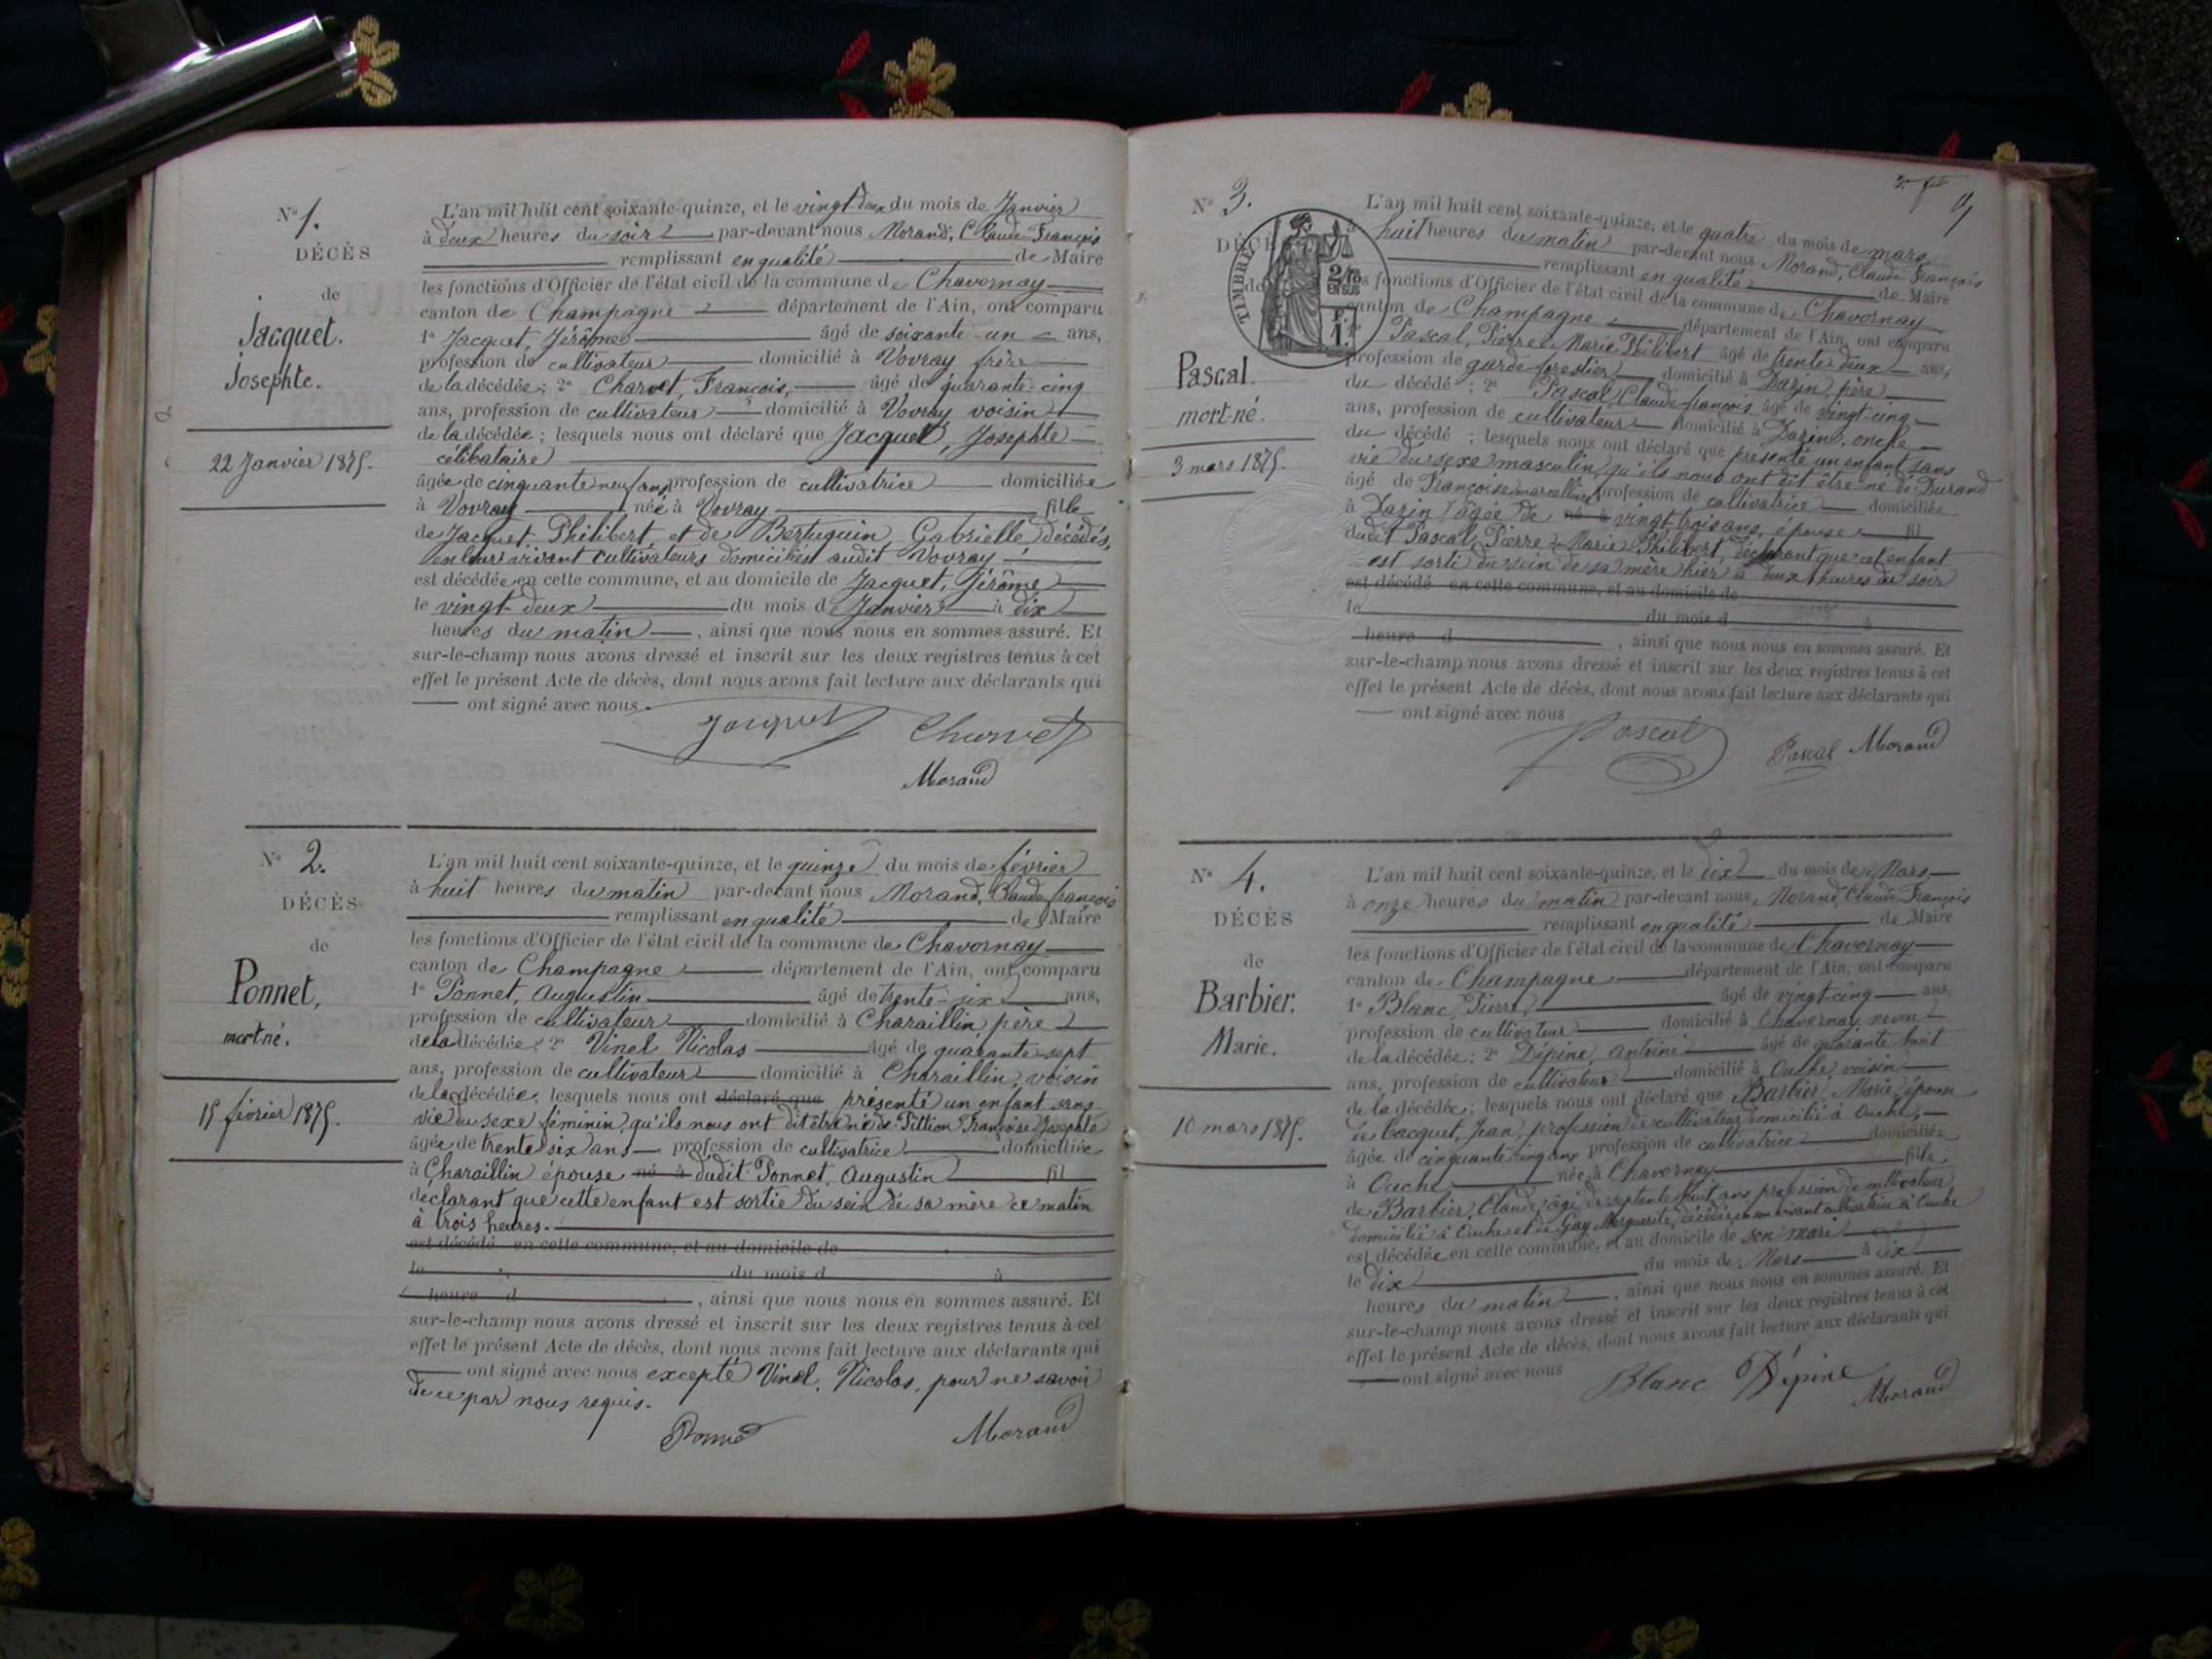 N° 1.
DÉCÈS
de
Jacquet.
Josephte.
22 Janvier 1875.
L'an mil huit cent soixante-quinze, et le vingt deux du mois de Janvier
à deux heures du soir par-devant nous Morand, Claude François
remplissant en qualité de Maire
les fonctions d'Officier de l'état civil de la commune de Chavornay
canton de Champagne département de l'Ain, ont comparu
1° Jacquet, Jérôme âgé de soixante-un ans,
profession de cultivateur domicilié à Vovray frère
de la décédée; 2° Charvet, François, âgé de quarante-cinq
ans, profession de cultivateur domicilié à Vovray voisin
de la décédée; lesquels nous ont déclaré que Jacquet, Josephte
célibataire
âgée de cinquante neuf ans profession de cultivatrice domiciliée
à Vovray née à Vovray fille
de Jacquet, Philibert, et de Bertuquin Gabrielle décédés,
en leur vivant cultivateurs domiciliés audit Vovray
est décédée en cette commune, et au domicile de Jacquet, Jérôme
le vingt-deux du mois de Janvier à dix
heures du matin, ainsi que nous nous en sommes assuré. Et
sur-le-champ nous avons dressé et inscrit sur les deux registres tenus à cet
effet le présent Acte de décès, dont nous avons fait lecture aux déclarants qui
ont signé avec nous.
Jacquet Charvet
Morand
N° 2.
DÉCÈS
de
Ponnet,
mort-né.
15 février 1875.
L'an mil huit cent soixante-quinze, et le quinze du mois de février
à huit heures du matin par-devant nous Morand, Claude françois
remplissant en qualité de Maire
les fonctions d'Officier de l'état civil de la commune de Chavornay
canton de Champagne département de l'Ain, ont comparu
1° Ponnet, Augustin âgé de trente-six ans,
profession de cultivateur domicilié à Charaillin père
de la décédée; 2° Vinel Nicolas âgé de quarante-sept
ans, profession de cultivateur domicilié à Charaillin, voisin
de la décédée, lesquels nous ont déclaré que présenté un enfant sans
vie du sexe féminin, qu'ils nous ont dit être né de Pittion Françoise Josephte
âgée de trente six ans profession de cultivatrice domiciliée
à Charaillin épouse né à dudit Ponnet, Augustin fil
déclarant que cette enfant est sortie du sein de sa mère ce matin
à trois heures.
est décédé en cette commune, et au domicile de
le du mois d à
heure d , ainsi que nous nous en sommes assuré. Et
sur-le-champ nous avons dressé et inscrit sur les deux registres tenus à cet
effet le présent Acte de décès, dont nous avons fait lecture aux déclarants qui
ont signé avec nous excepté Vinel, Nicolas, pour ne savoir
de ce par nous requis.
Ponnet Morand
N° 3.
DÉCÈ
de
TIMBRE
2/10
EN SUS
F.
1.
Pascal.
mort-né.
3 mars 1875.
L'an mil huit cent soixante-quinze, et le quatre du mois de mars
à huit heures du matin par-devant nous Morand, Claude François
remplissant en qualité de Maire
les fonctions d'Officier de l'état civil de la commune de Chavornay
canton de Champagne département de l'Ain, ont comparu
1° Pascal, Pierre Marie Philibert âgé de trente-deux ans,
profession de garde forestier domicilié à Dazin, père
du décédé; 2° Pascal, Claude françois âgé de vingt-cinq
ans, profession de cultivateur domicilié à Dazin, oncle
du décédé; lesquels nous ont déclaré que présenté un enfant sans
vie du sexe masculin, qu'ils nous ont dit être né de Durand
âgé de Françoise marcelline, profession de cultivatrice domiciliée
à Dazin, âgée de né à vingt-trois ans, épouse fil
dudit Pascal, Pierre Marie Philibert, déclarant que cet enfant
est sorti du sein de sa mère hier à deux heures du soir
est décédé en cette commune, et au domicile de
le du mois d à
heure d , ainsi que nous nous en sommes assuré. Et
sur-le-champ nous avons dressé et inscrit sur les deux registres tenus à cet
effet le présent Acte de décès, dont nous avons fait lecture aux déclarants qui
ont signé avec nous
Pascal Pascal Morand
N° 4.
DÉCÈS
de
Barbier.
Marie.
10 mars 1875.
L'an mil huit cent soixante-quinze, et le dix du mois de Mars
à onze heures du matin par-devant nous Morand, Claude François
remplissant en qualité de Maire
les fonctions d'Officier de l'état civil de la commune de Chavornay
canton de Champagne département de l'Ain, ont comparu
1° Blanc, Pierre âgé de vingt-cinq ans,
profession de cultivateur domicilié à Chavornay neveu
de la décédée; 2° Dépine, Antoine âgé de quarante huit
ans, profession de cultivateur domicilié à Ouche, voisin
de la décédée; lesquels nous ont déclaré que Barbier, Marie, épouse
de Cacquet, Jean, profession de cultivateur domicilié à Ouche,
âgée de cinquante cinq ans profession de cultivatrice domiciliée
à Ouche née à Chavornay fille
de Barbier, Claude, âgé de septante huit ans, profession de cultivateur,
domicilié à Ouche et de Gay Marguerite, décédée, en son vivant cultivatrice à Ouche
est décédée en cette commune, et au domicile de son mari
le dix du mois de Mars à dix
heures du matin, ainsi que nous nous en sommes assuré. Et
sur-le-champ nous avons dressé et inscrit sur les deux registres tenus à cet
effet le présent Acte de décès, dont nous avons fait lecture aux déclarants qui
ont signé avec nous
Blanc Dépine
Morand